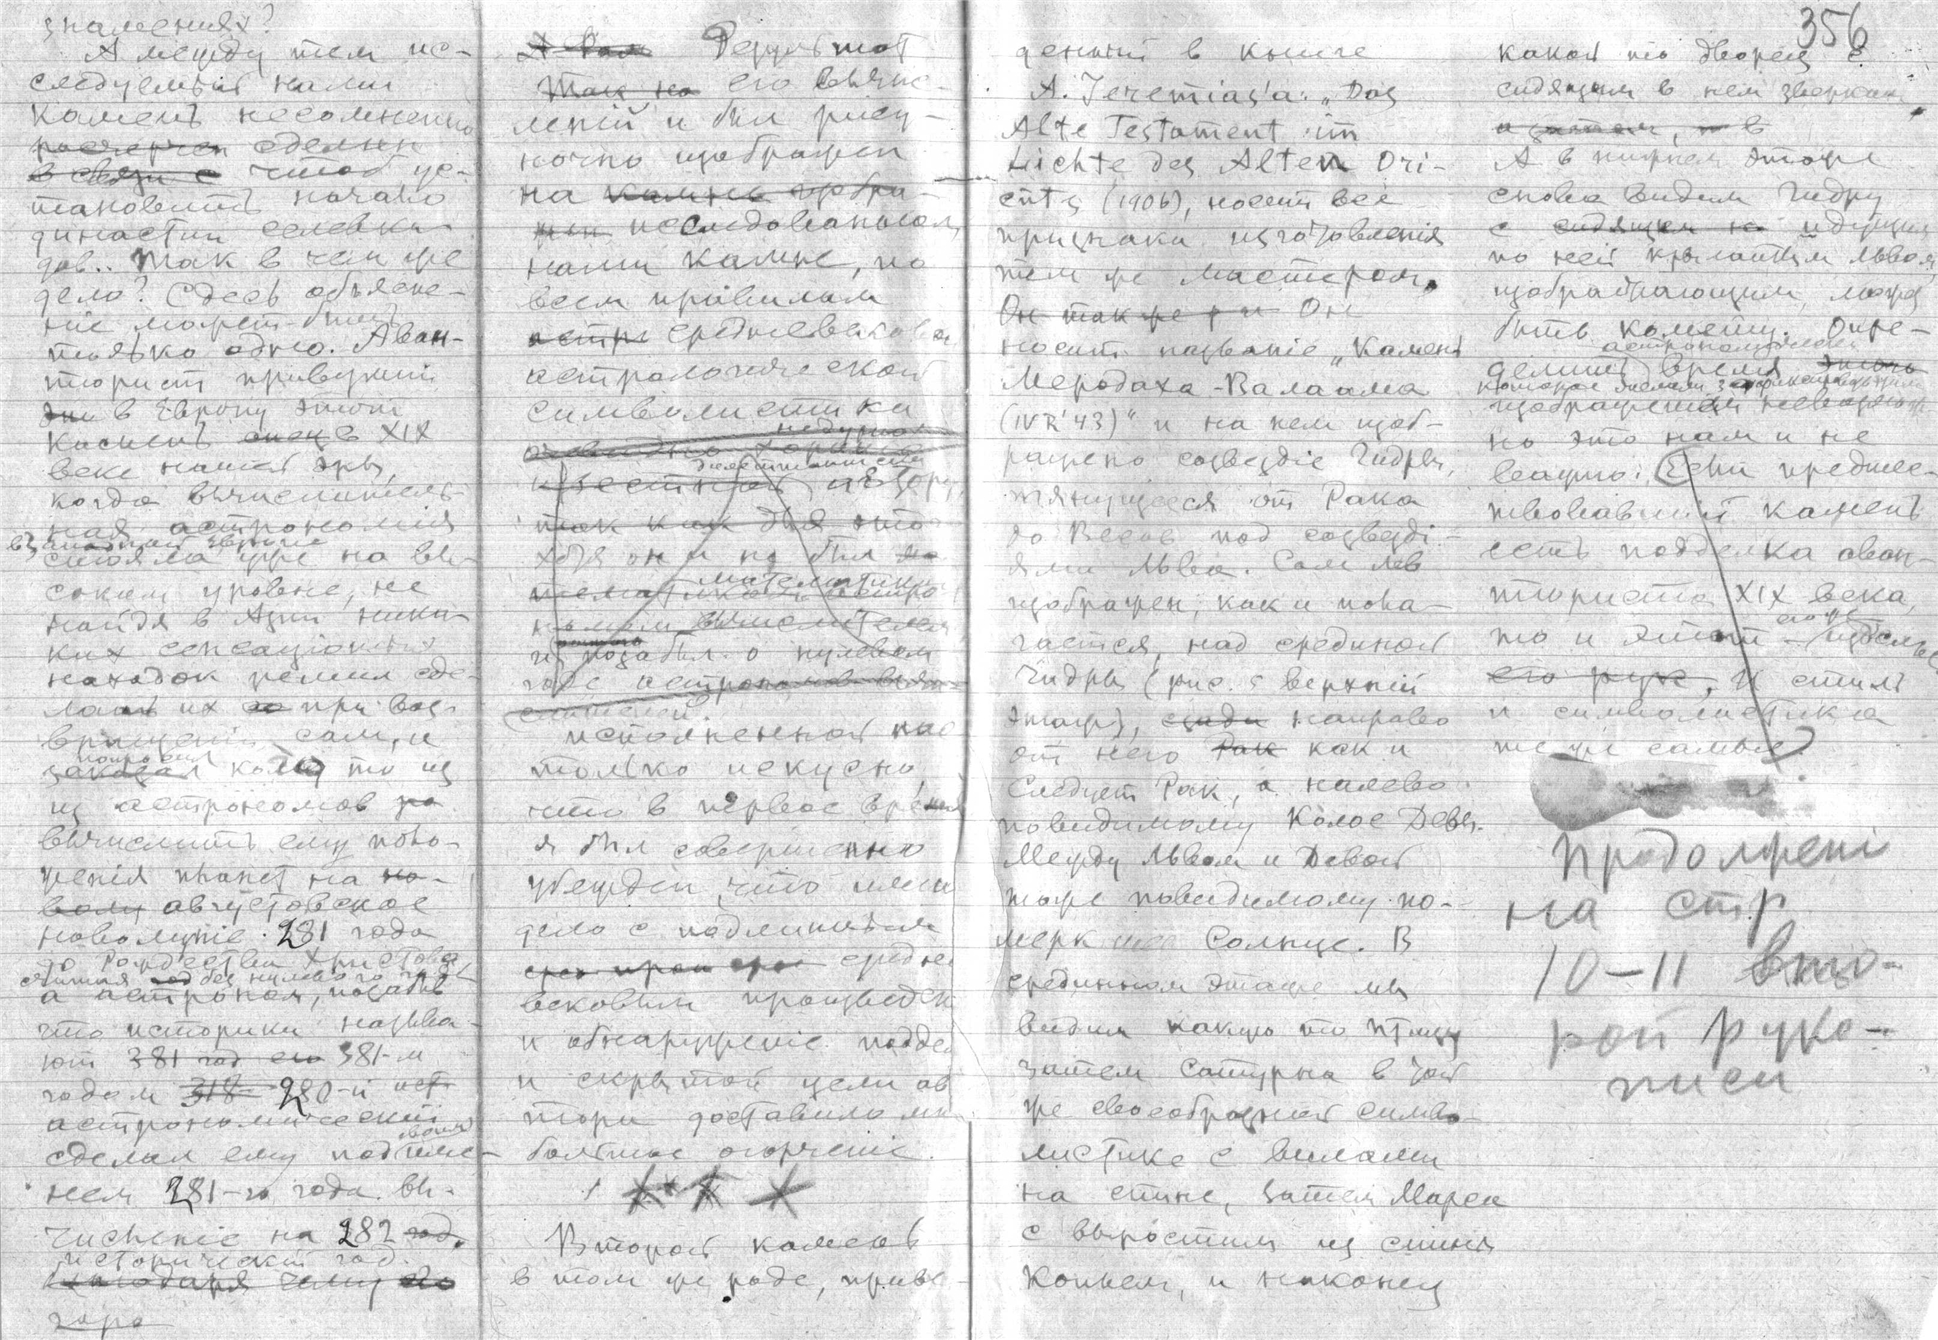 знамениях?
А между тем ис-
следуемый нами
камень несомненно
расчерчен сделан
в связи с чтоб ус-
тановить начало
династии селевки-
дов.. Так в чем же
дело? Здесь объясне-
ніе может-быть
только одно. Аван-
тюрист привезший
в Европу этот
камень в XIX
веке нашей эры,
когда вычислитель-
ная астрономія
в Западной Европе
стояла уже на вы-
соком уровне, не
найдя в Азіи ника-
ких сенсаціонных
находок решил сде-
лать их при воз-
вращеніи сам, и
попросил
заказал кому то из
из астрономов
вычислить ему поло-
женія планет на но-
вому августовское
новолуніе 281 года
до Рождества Христова,
считая без нулевого года
а астроном, позабыв
что историки называ-
ют 381 год его 381-м
годом 318 280-й аст
астрономический
сделал ему под име-
нем 281-го года вы-
численіе на 282 год.
исторический год.
благодаря чему его
А вот Результат
Так на его вычис-
леній и был рису-
ночно изображен
на камне изобра-
исследованном
нами камне, по
всем правилам
астр средневековой
астрологической
символистики
недурно
очевидно хорошо
известной автору,
так как для это
хотя он и не был
математиком
тематиком астро
номом вычислителем
и позабыл о нулевом
годе астрономов вычи-
слителей.
исполненной нас
только искусно,
что в первое время
я был совершенно
убежден, что имею
дело с подлинным
средне
вековым произведен
и обнаруженіе поддел
и скрытой цели ав
тора доставило мн
большое огорченіе.
* * *
Второй камень
в том же роде, приве-
денный в книге
А. Jeremias'a: „Das
Alte Testament im
Lichte des Alten Ori-
ents (1906), носит все
признаки изготовленія
тем же мастером.
Он также Он
носит названіе „Камень
Меродаха-Валаама
(IV R 43)" и на нем изоб-
ражено созвездіе Гидры,
тянущееся от Рака
до Весов под созвезді-
ями Льва. Сам Лев
изображен, как и пола-
гается, над срединой
Гидры (рис. верхній
этаж), сзади направо
от него Рак как и
следует Рак, а налево
повидимому Колос Девы.
Между Львом и Девой
тоже повидимому по-
меркшее Солнце. В
срединном этаже мы
видим какую то птицу
затем Сатурна в той
же своеобразной симво-
листике с вилами
на спине, затем Марса
с выростшим из спины
копьем, и наконец
356
какой то дворец с
сидящим в нем зверком.
а затем, в
А в нижнем этаже
снова видим Гидру
с сидящим на идущим
по ней крылатым львом,
изображающим, може
быть комету. Опре-
астрономически
делить время этого
изображеніем невозмож
но это нам и не
важно. Если предшес-
твовавший камень
есть подделка аван-
тюриста XIX века,
то и этот его же изделье
его рук, и стиль
и символистика
те же самые
Продолжені
на стр
10–11 вто-
рой руко-
писи